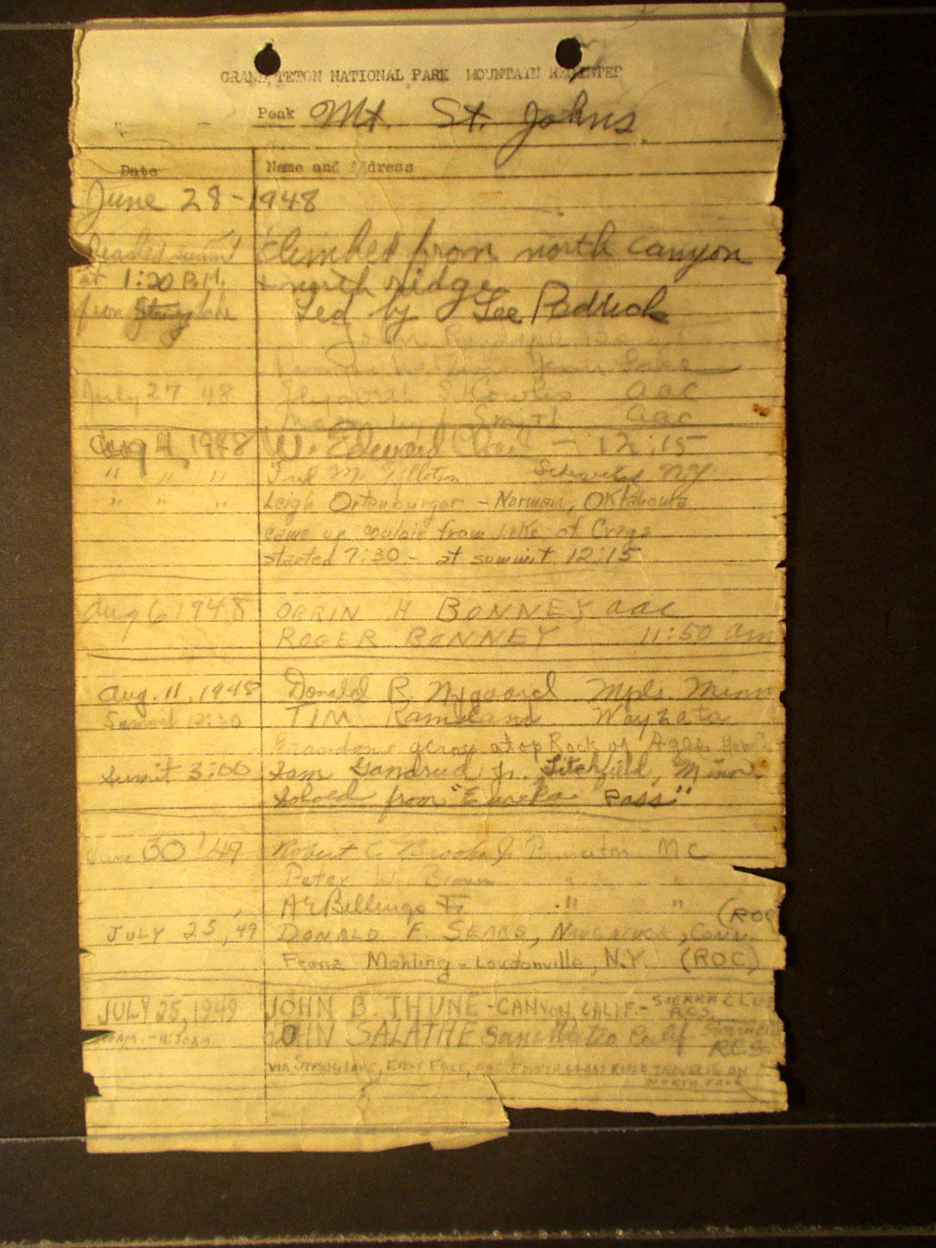 GRAND TETON NATIONAL PARK MOUNTAIN REGISTER
Peak Mt. St. Johns
Date Name and Address
June 28-1948
Reached summit Climbed from north canyon
at 1:20 P.M. & north ridge
from String Lake Led by Lee Pedrick
July 27 48 Elizabeth S. Cowles aac
Smith aac
Aug 4, 1948 W. Edward - 12:15
" " " M. NY
" " " Leigh Ortenburger - Norman, Oklahoma
came up couloir from Lake of Crags
started 7:30 - at summit 12:15
Aug 6 1948 ORRIN H BONNEY aac
ROGER BONNEY 11:50 am
Aug. 11, 1948 Donald R. Nygaard Mpls. Minn
Summit 12:30 TIM Wayzata
across atop Rock of Ages
Summit 3:00 Sam Gandrud Jr. Litchfield, Minn.
Soloed from "Eureka Pass"
June 30 '49 Robert C. Princeton
Peter W. " "
Billings " "
(ROC
JULY 25, 49 DONALD F. SEARS, NAUGATUCK, CONN.
Franz Mohling - Loudonville, N.Y. (ROC)
JULY 25, 1949 JOHN B. THUNE - CANYON CALIF - SIERRA CLUB
R.C.S.
JOHN SALATHE San Mateo Calif Sierra
R.C.S.
VIA STRING LAKE, EAST FACE, AND FOURTH CLASS ROPED TRAVERSE ON
NORTH FACE